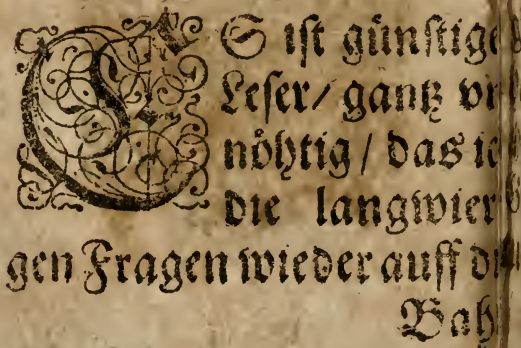 ES ist günstige
Leser/ gantz vn
nöhtig/ das ic
die langwier
gen Fragen wieder auff di
Bah